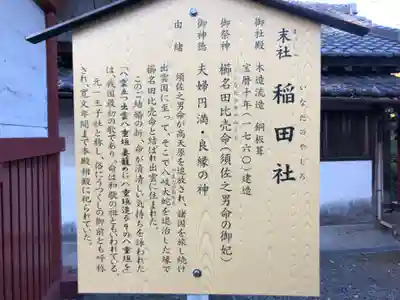 末社 稲田社
いなだのやしろ
御社殿 木造流造 銅板葺
宝暦十年(一七六〇)建造
御祭神 櫛名田比売命(須佐之男命の御妃)
御神徳 夫婦円満・良縁の神
由緒 須佐之男命が高天原を追放され、諸国を旅し続け
出雲国に至って、そこで八岐大蛇を退治した縁で
櫛名田比売命と結ばれ出雲に住まれた。
このご結婚の折、命が清清しい気持ちを詠われた
「八雲立つ出雲八重垣妻籠めに八重垣造るその八重垣を」
は、我国最初の歌であり、命は和歌の祖ともいわれている。
元、一王子社と称し、俗にうつくしの御前とも呼称
され、寛文年間まで本殿相殿に祀られていた。